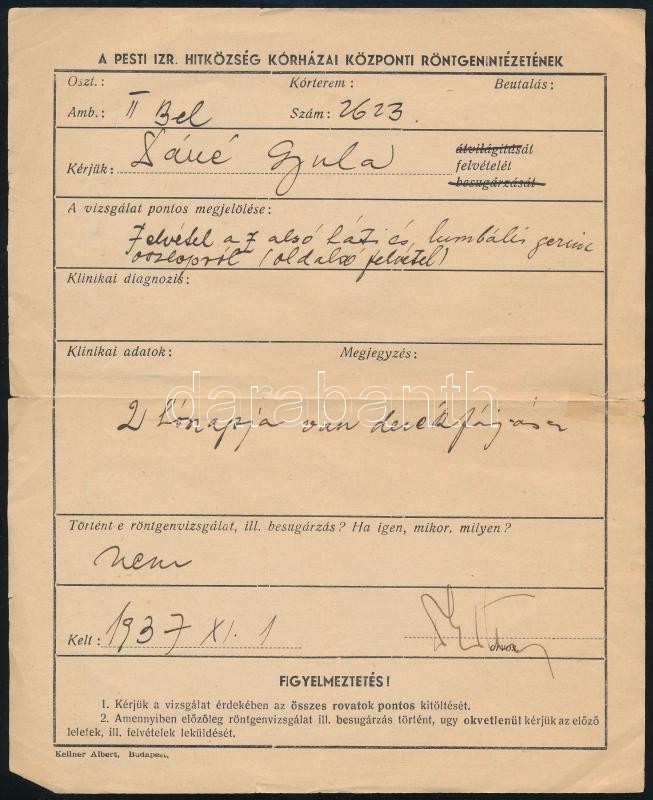 A PESTI IZR. HITKÖZSÉG KÓRHÁZAI KÖZPONTI RÖNTGENINTÉZETÉNEK
Oszt.: Kórterem: Beutalás:
Amb.: II Bel Szám: 2623.
átvilágítását
Kérjük: Gyula felvételét
besugárzását
A vizsgálat pontos megjelölése:
Felvétel a 7 alsó háti és lumbális gerinc
oszlopról (oldalsó felvétel)
Klinikai diagnozis:
Klinikai adatok: Megjegyzés:
darabanth
2 hónapja van derékfájása
Történt-e röntgenvizsgálat, ill. besugárzás? Ha igen, mikor, milyen?
nem
Kelt: 1937 XI. 1
orvos.
FIGYELMEZTETÉS!
1. Kérjük a vizsgálat érdekében az összes rovatok pontos kitöltését.
2. Amennyiben előzőleg röntgenvizsgálat ill. besugárzás történt, ugy okvetlenül kérjük az előző
leletek, ill. felvételek leküldését.
Kellner Albert, Budapest.